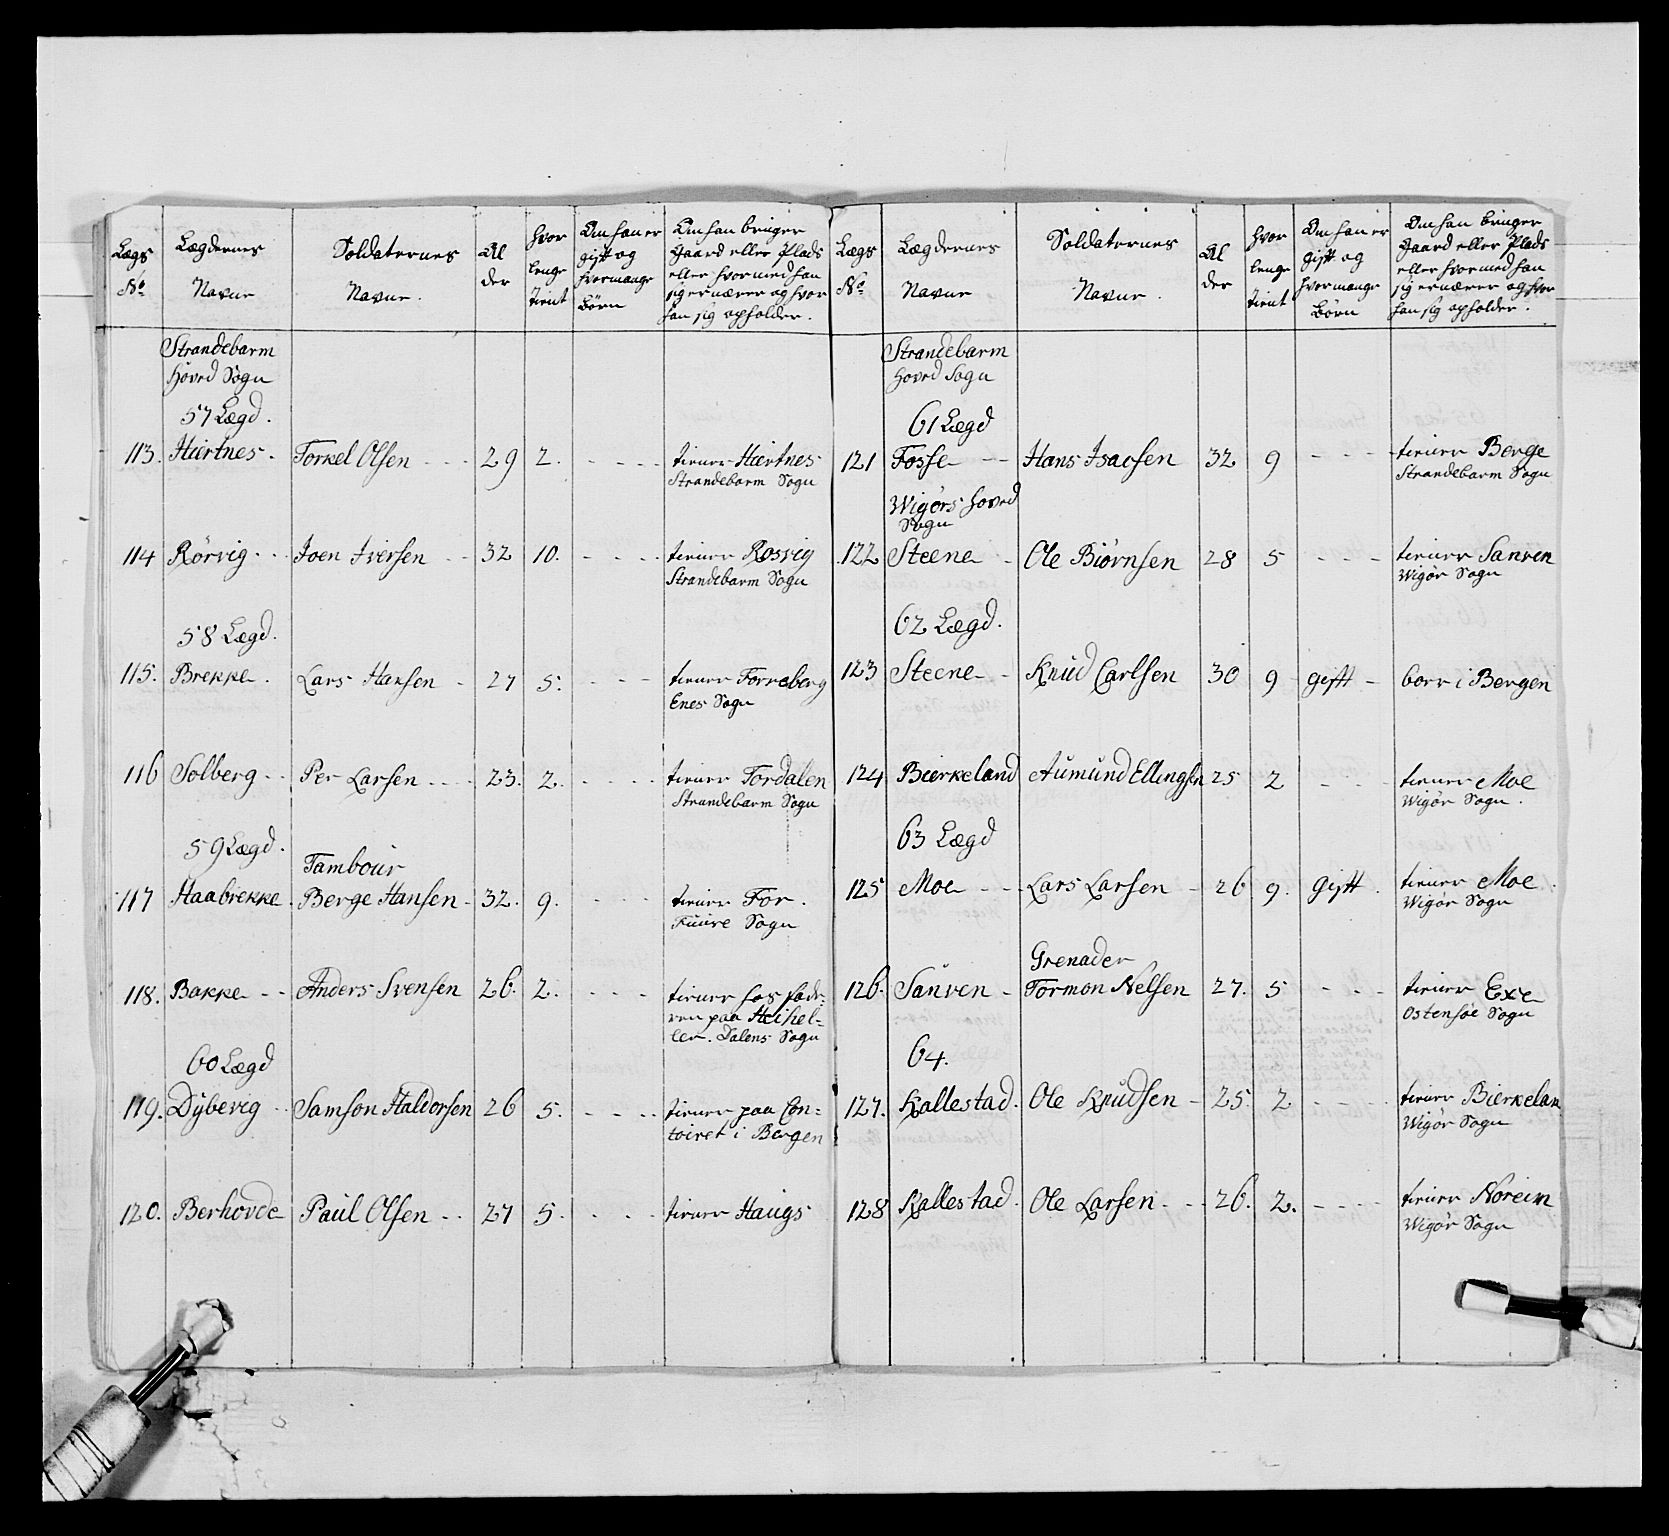 Lægs No
Lægdernes Navne
Soldaternes Navne.
Alder
hvor lenge tient
Om han er gift og hvormange Børn
Om han bruger Gaard eller Plads eller hvormed han sig ernærer og hvor han sig opholder.
Strandebarm
Hoved Sogn
57 Lægd.
113. Hiertnes. Torkel Olsen --- 29 2. ---- tiener Hiertnes
Strandebarm Sogn
114 Rörvig -- Joen Iversen -- 32 10. ---- tiener Rosvig
Strandebarm Sogn
58 Lægd.
115. Brekke. Lars Hansen - 27 5. --- tiener Torreberg
Enes Sogn
116 Solberg -- Per Larsen ---- 23. 2. ---- tiener Tordalen
Strandebarm Sogn
59 Lægd.
Tambour
117 Haabrekke. Berge Hansen - 32. 9. --- tiener For.
Fuure Sogn
118. Bakke -- Anders Svensen 26. 2. --- tiener hos fade-
ren paa Heihel-
ler. Dalens Sogn
60 Lægd
119. Dÿbevig -- Samson Haldorsen 26 5. ---- tiener paa Con-
toiret i Bergen
120. Berhovde Paul Olsen -- 27 5. ---- tiener Haugs
Lægs No
Lægdernes Navne
Soldaternes Navne.
Alder
hvor lenge tient
Om han er gift og hvormange Börn
Om han bruger Gaard eller Plads eller hvormed han sig ernærer og hvor han sig opholder.
Strandebarm
hoved Sogn
61 Lægd
121 Fosse -- Hans Isacsen 32 9 --- tiener Berge
Strandebarm Sogn
Wigörs hoved
Sogn
122 Steene - Ole Biörnsen 28 5 --- tiener Sanven
Wigör Sogn
62 Lægd.
123 Steene - Knud Carlsen 30 9 gift - boer i Bergen
124 Bierkeland Aumund Ellingsen 25 2 --- tiener Moe
Wigör Sogn.
63 Lægd
125 Moe --- Lars Larsen - 26 9. gift. tiener Moe
Wigör Sogn
Grenader
126. Sanven - Tormon Nelsen 27. 5 --- tiener Exe
Ostensöe Sogn
64.
127. Kallestad. Ole Knudsen - 25. 2 ---- tiener Bierkelan
Wigör Sogn
128 Kallestad. Ole Larsen --- 26. 2. ---- tiener Noreim
Wigör Sogn